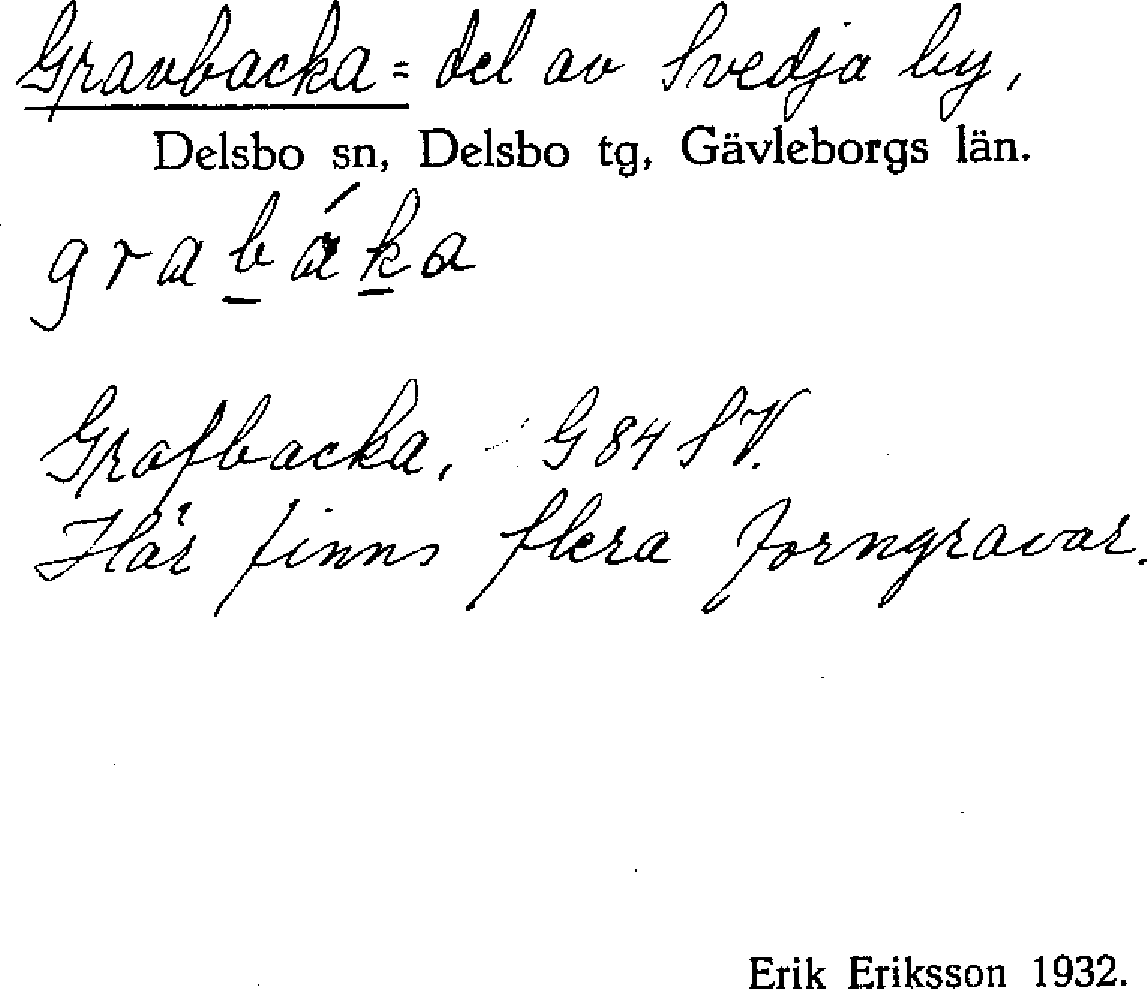 Gravbacka = del av Svedja by,
Delsbo sn, Delsbo tg, Gävleborgs län.
grabáka
Grafbacka, G 84 SV.
Här finns flera forngravar.
Erik Eriksson 1932.